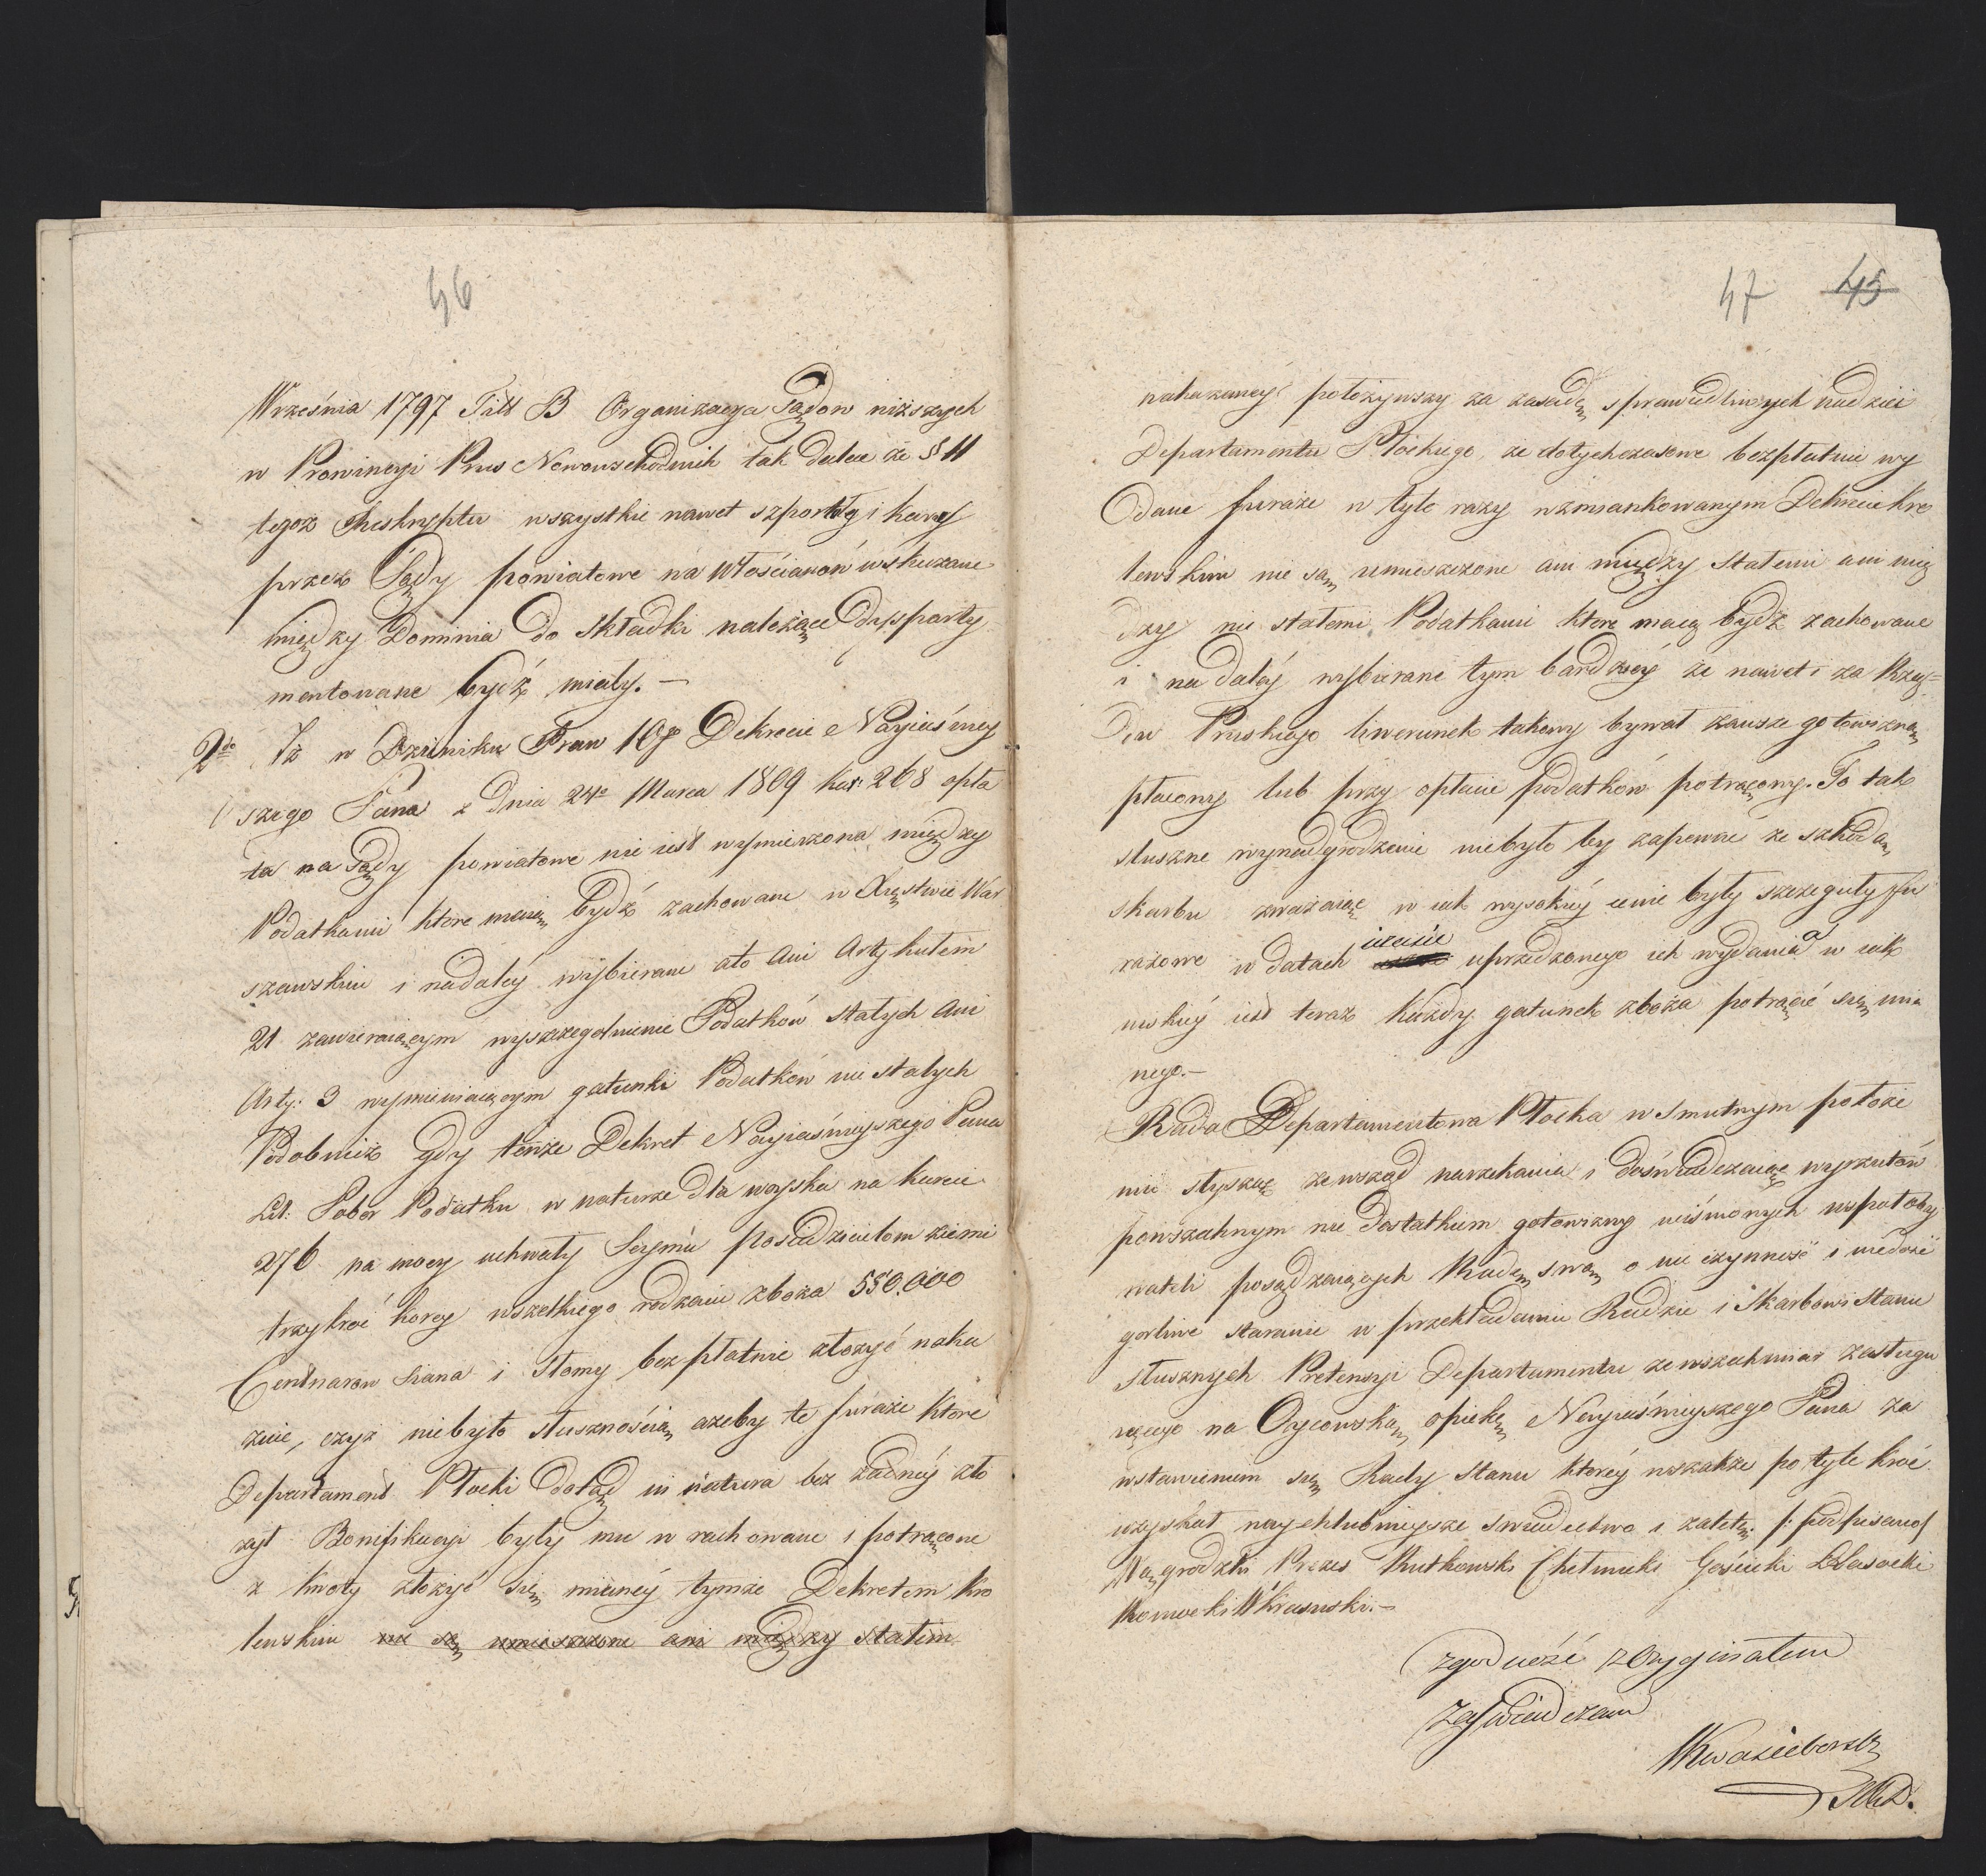 46
Września 1797 Titt B Organizacya Sądow niższych
w Prowincyi Prus Nowowschodnich tak dalece że § 11
tegoż Reskryptu wszystkie nawet szportlg i kary
przez Sądy powiatowe na Włościanów wskazane
między Dominia do składki należące dyspparty
mentowane bydź miały. —
2do Iż w Dzienniku Praw 10go Dekrecie Nayiaśniey
szego Pana z Dnia 24o Marca 1809 kar: 268 opła
ta na Sądy powiatowe nie iest wymieszona między
Podatkami które maią bydź zachowane w Xięstwie War
szawskim i nadaley wybierane ato Ani Artykułem
21 zawieraiącym wyszczegolnienie Podatków stałych Ani
Arty: 3 wymieniaiącym gatunki Podatków nie stałych
Podobnież gdy tenże Dekret Nayiaśnieyszego Pana
Lit: Pobor Podatku w naturze dla woyska na karcie
276 na mocy uchwały Seymu posiadzicielom ziemi
trzykroć korcy wszelkiego rodzaiu zboża 550.000
Centnarow Siana i Słomy bezpłatnie złożyć naka
zuie, czyż niebyło słusznością ażeby te furaże ktore
Departament Płocki dotąd in natura bez żadnéy zło
zył Bonifikacyi były mu w rachowane i potrącone
z kwoty złożyć się mianéy tymże Dekretem Kro
lewskim nie są umieszczone ani między statim
47 45
nakazanéy położywszy za zasadę sprawiedliwych nadziei
Departamentu Płockiego, że dotychczasowe bezpłatnie wy
Odane furaże w tyle razy wzmiankowanym Dekrecie Kro
lewskim nie są umieszczone ani między Stałemi ani mię
dzy nie stałemi Podatkami ktore maią bydź zachowane
i na daléy wybierane tym bardziéy że nawet i za Rzą=
Dów Pruskiego liwerunek takowy bywał zawsze gotowizną
płacony lub przy opłacie podatków potrącony. To tak
słuszne wynadgrodzenie niebyło by zapewne ze szkodą
skarbu zważaiąc w iak wysokiéy cenie były szczeguły fu
rażowe w datach uprzedzonego ich wydania a w iak
niskiéy iest teraz każdy gatunek zboża potrącić się mia
nego. —
Rada Departamentowa Płocka w smutnym położe
niu słysząc zewsząd narzekania i doświadczaiąc wyrzutów
powszechnym nie dostatkiem gotowizny uciśnionych wspołoby
wateli posądzaiących Radę swą o nie czynność i niedość
gorliwe staranie w przekładaniu Radzie i Skarbowi Stanu
słusznych Pretensyi Departamentu ze wszech miar zasługu
iącego na Oycowską opiekę Nayiaśnieyszego Pana za
wstawieniem się Rady Stanu któréy wszakże po tyle kroć
uzyskał naychlubnieysze świadectwo i zaletę. /: podpisano/
Nagrodzki Prezes Rutkowski Chełmicki Gościcki Lasocki
Karwocki W Krasnski. —
Zgodność z Oryginałem
Zaświadczam
Kwasieborski